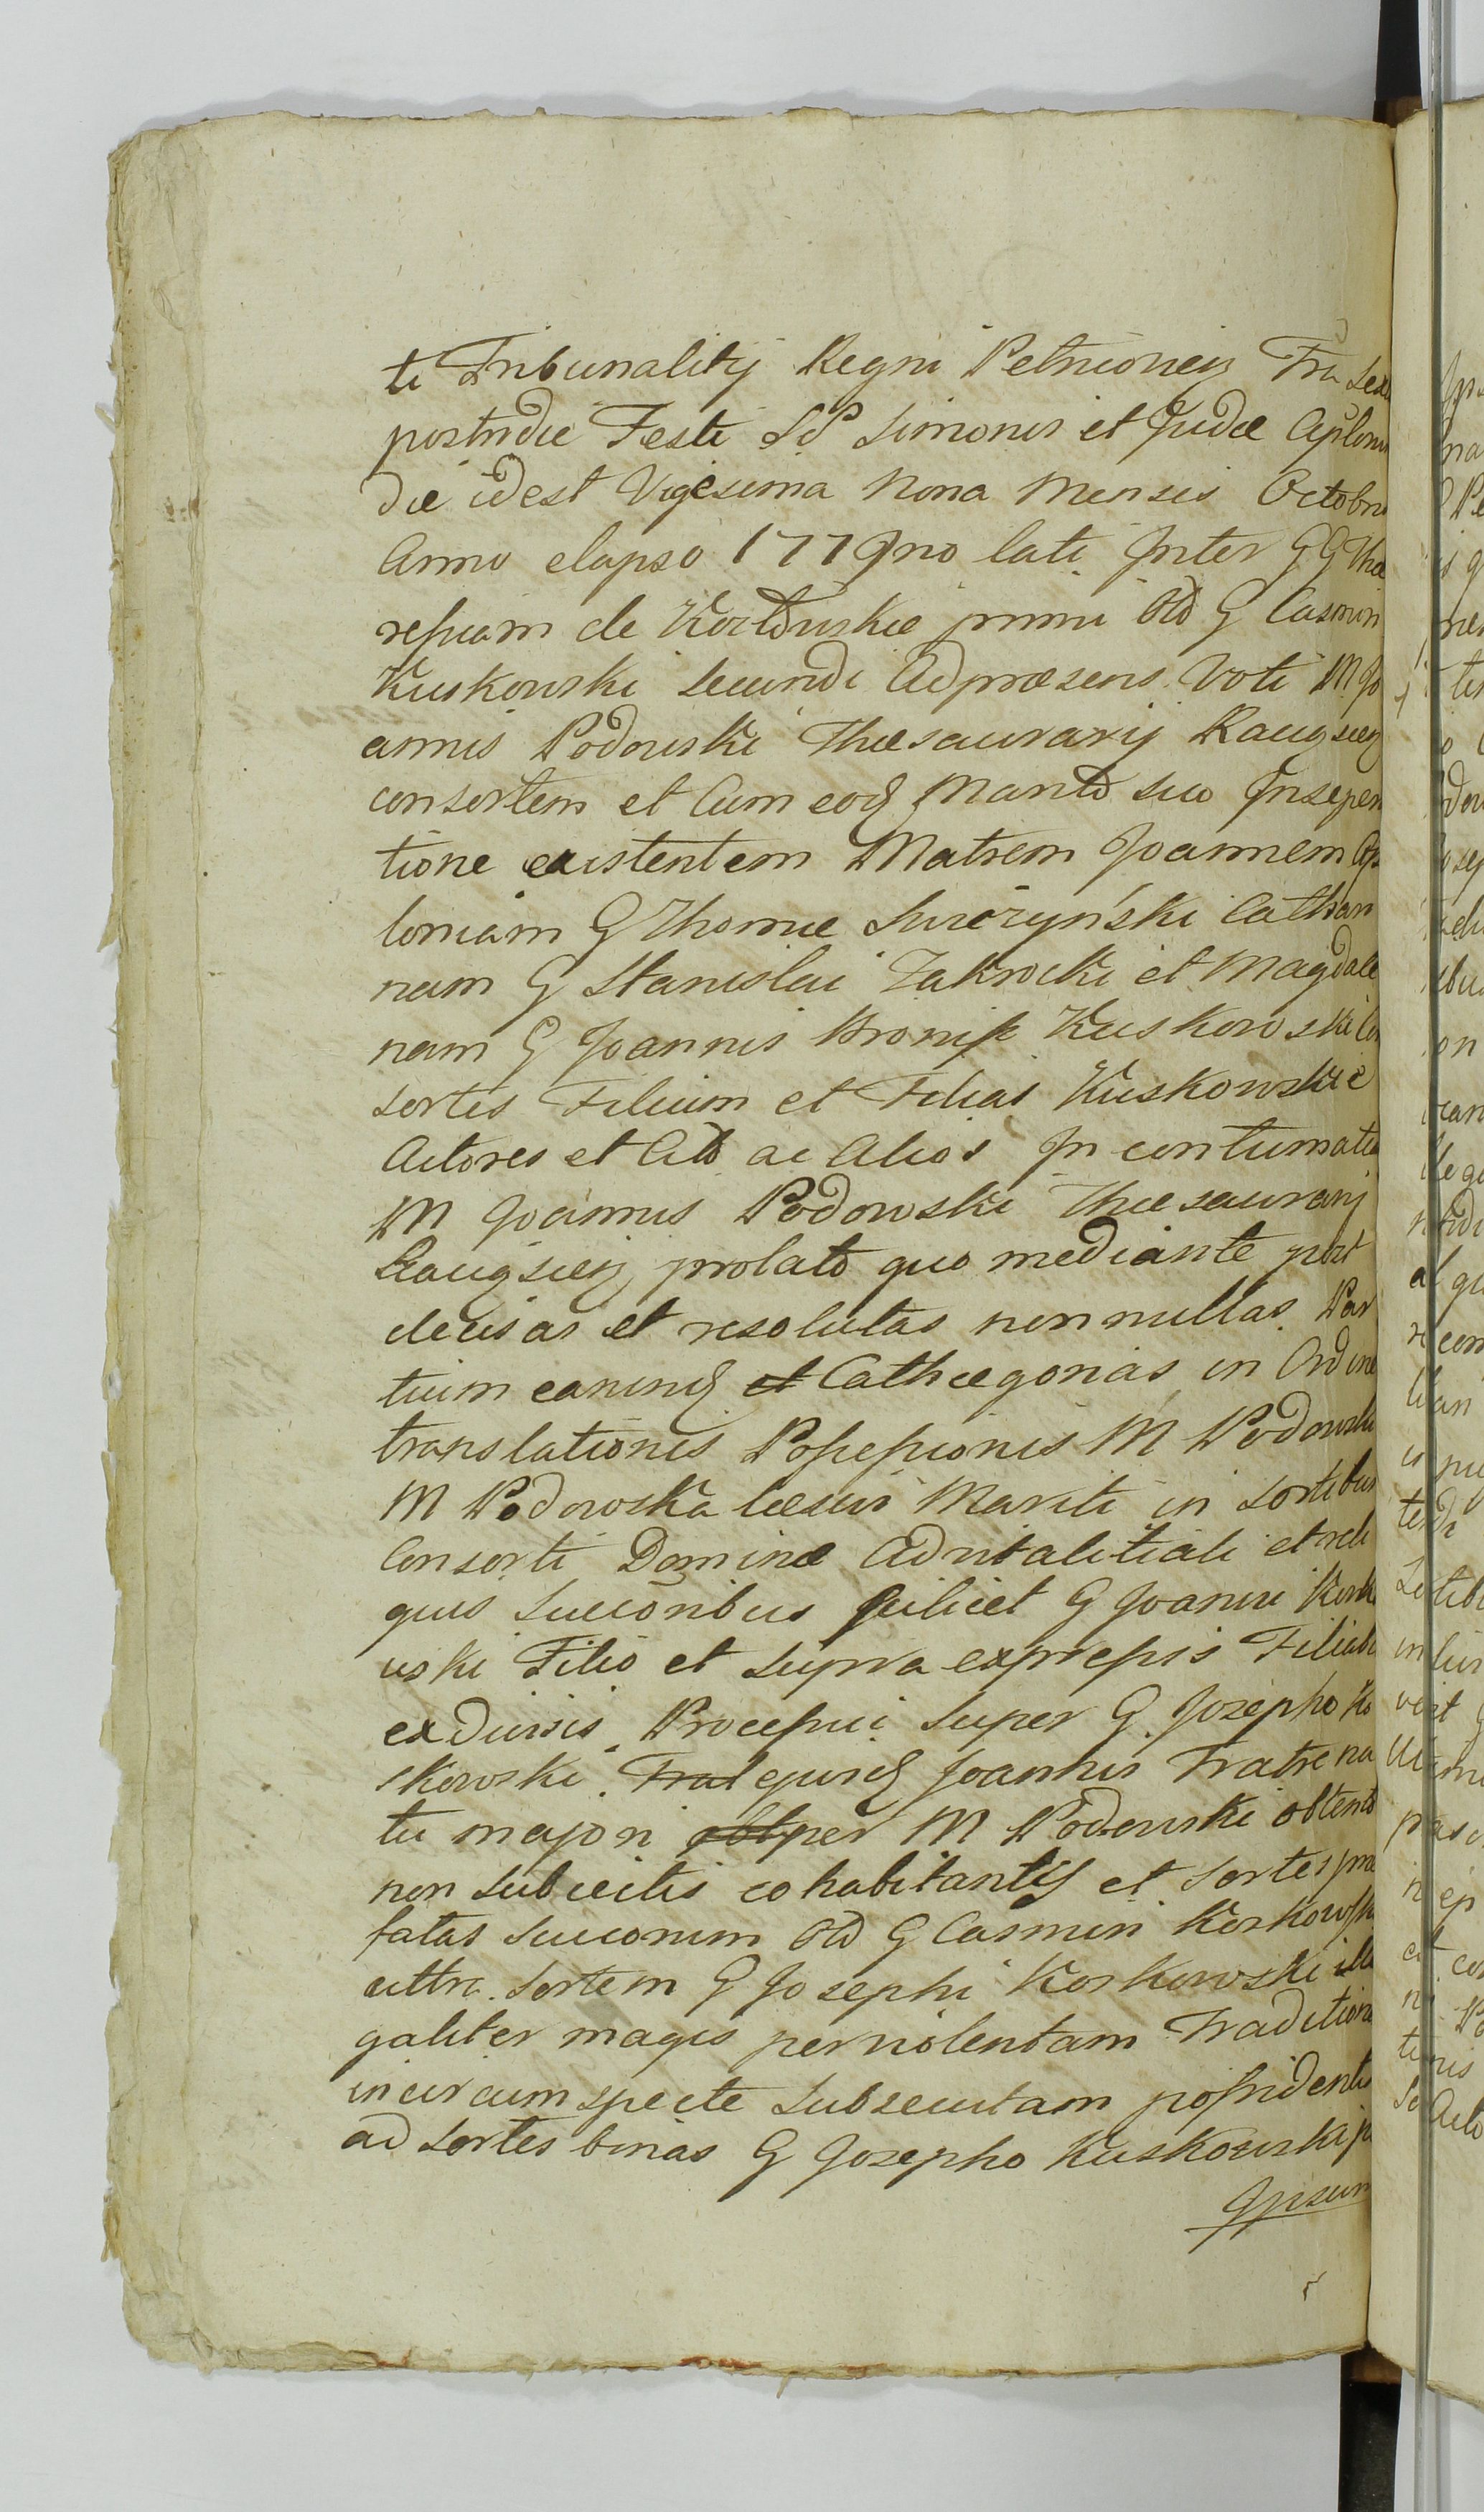 ti Tribunalitij Regni Petricovien Fria Sex
postridie Festi S.S. Simonis et Judæ Aplorum
die id est Vigesima Nona Mensis Octobris
Anno elapso 1779no lati Inter G G The
resiam de Kozłowskie primi Olo G Casimiri
Kuskowski secundi Ad præsens Voti M Jo
annis Podowski Thesaurarij Raugsien
consortem et Cum eod Marito suo In separa
tione existentem Matrem Joannem Apo
loniam G Thomæ Swiezyński Cathari
nam G Stanislai Zakrocki et Magdale
nam G Joannis Kuskowski Con
sortes Filium et Filias Kuskowskie
Actores et Cito ac Alios In contumatia
M Joannis Podowski Thesaurarij
Raugsien prolato quo mediante post
decisas et resolutas nonnullas Par
tium earund Cathægorias in Ordine
translationis Possessionis M Podowski
M Podowska læsivi Mariti in Sortibus
Consorti Dominæ Advitalitiali et reli
quis Succoribus scilicet G Joanni Kusko
wski Filio et supra expressis Filiabus
ex divisis Processui super G Josepho Ko
skowski Frat ejusd Joannis Fratre na
tu majori per M Podowski obtento
non subjectis cohabitantis et Sortes præ
fatas Succorum Olo G Casimiri Koskowski
citra Sortem G Josephi Koskowski ille
galiter magis per violentam Traditionem
incircumspecte subsecutam possidentis
ad Sortes binas G Josepho Kuskowski p
Ipsum